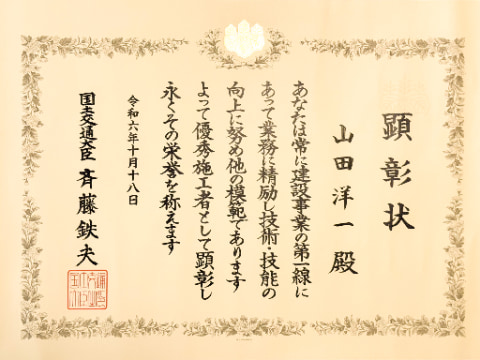 顕彰状
山田洋一殿
あなたは常に建設事業の第一線に
あって業務に精励し技術・技能の
向上に努め他の模範であります
よって優秀施工者として顕彰し
永くその栄誉を称えます
令和六年十月十八日
国土交通大臣 斉藤鉄夫